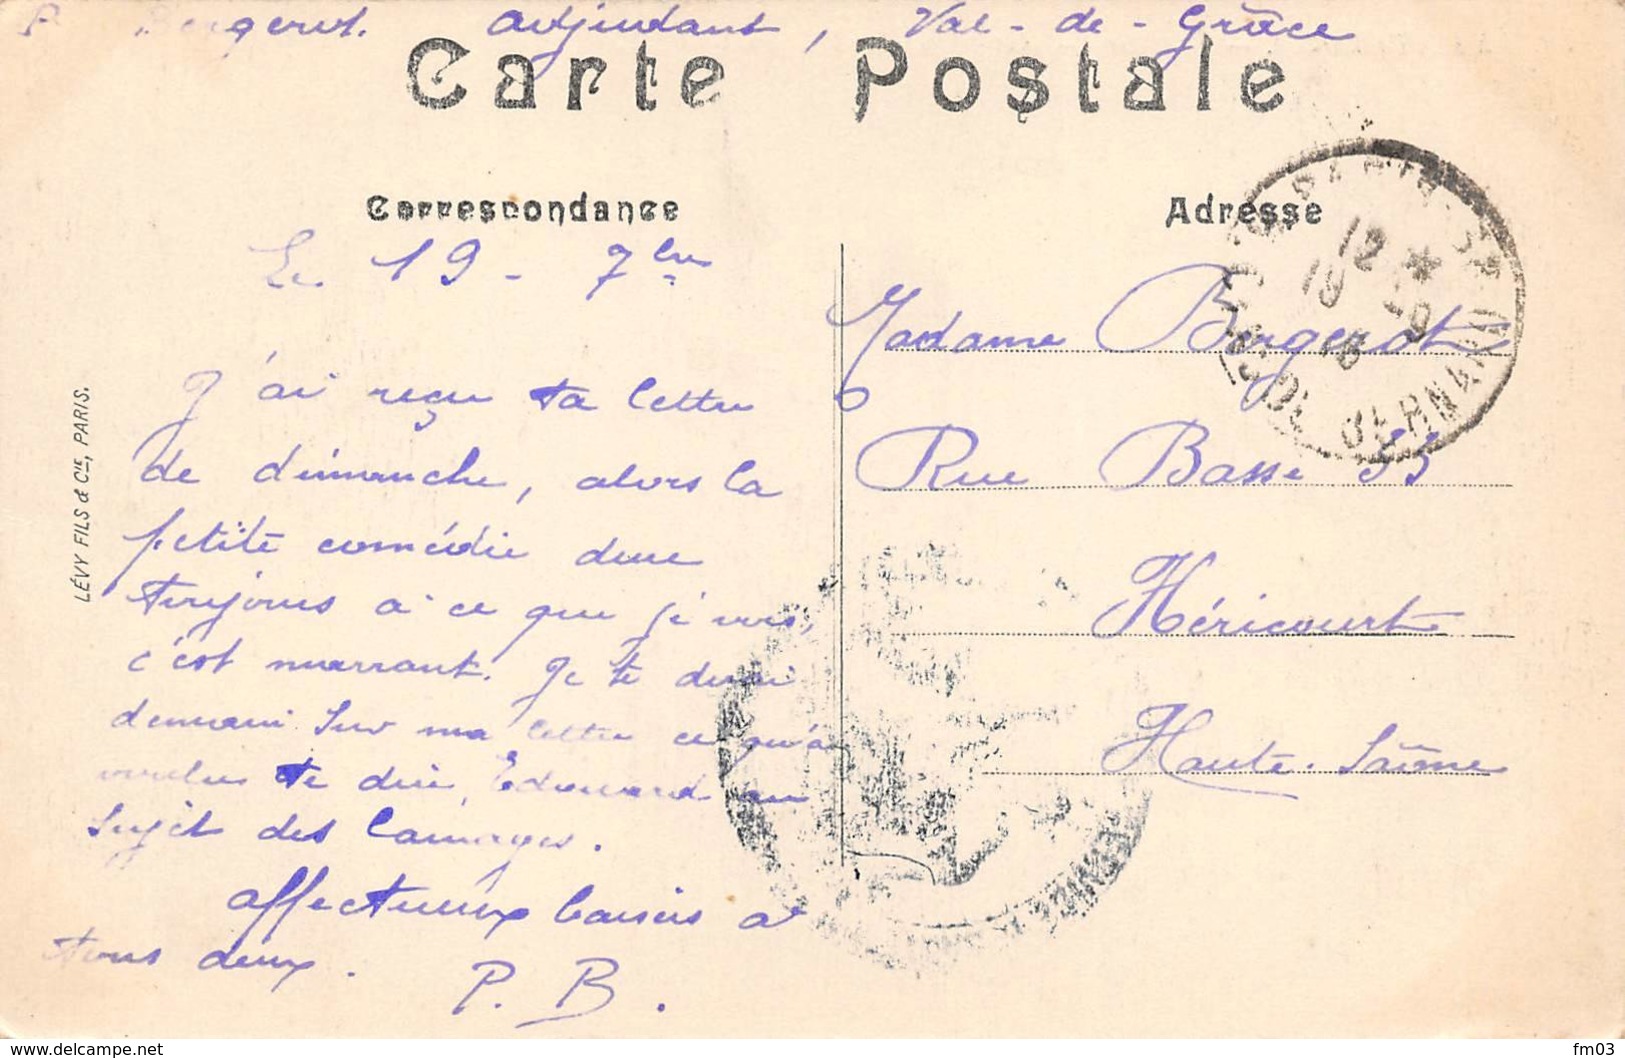 P. Bergerot. Adjudant, Val-de-Grâce
Carte Postale
Correspondance
Adresse
Le 19 - 7bre
J'ai reçu ta lettre
de dimanche, alors la
petite comédie dure
toujours à ce que je vois,
c'est marrant. Je te dirai
demain sur ma lettre ce qu'a
voulu te dire Edouard au
sujet des
affectueux baisers à
tous deux.
P. B.
Madame Bergerot
Rue Basse 53
Héricourt
Haute-Saône
LÉVY FILS & Cie, PARIS.
12 *
18 - 9
16
www.delcampe.net
fm03